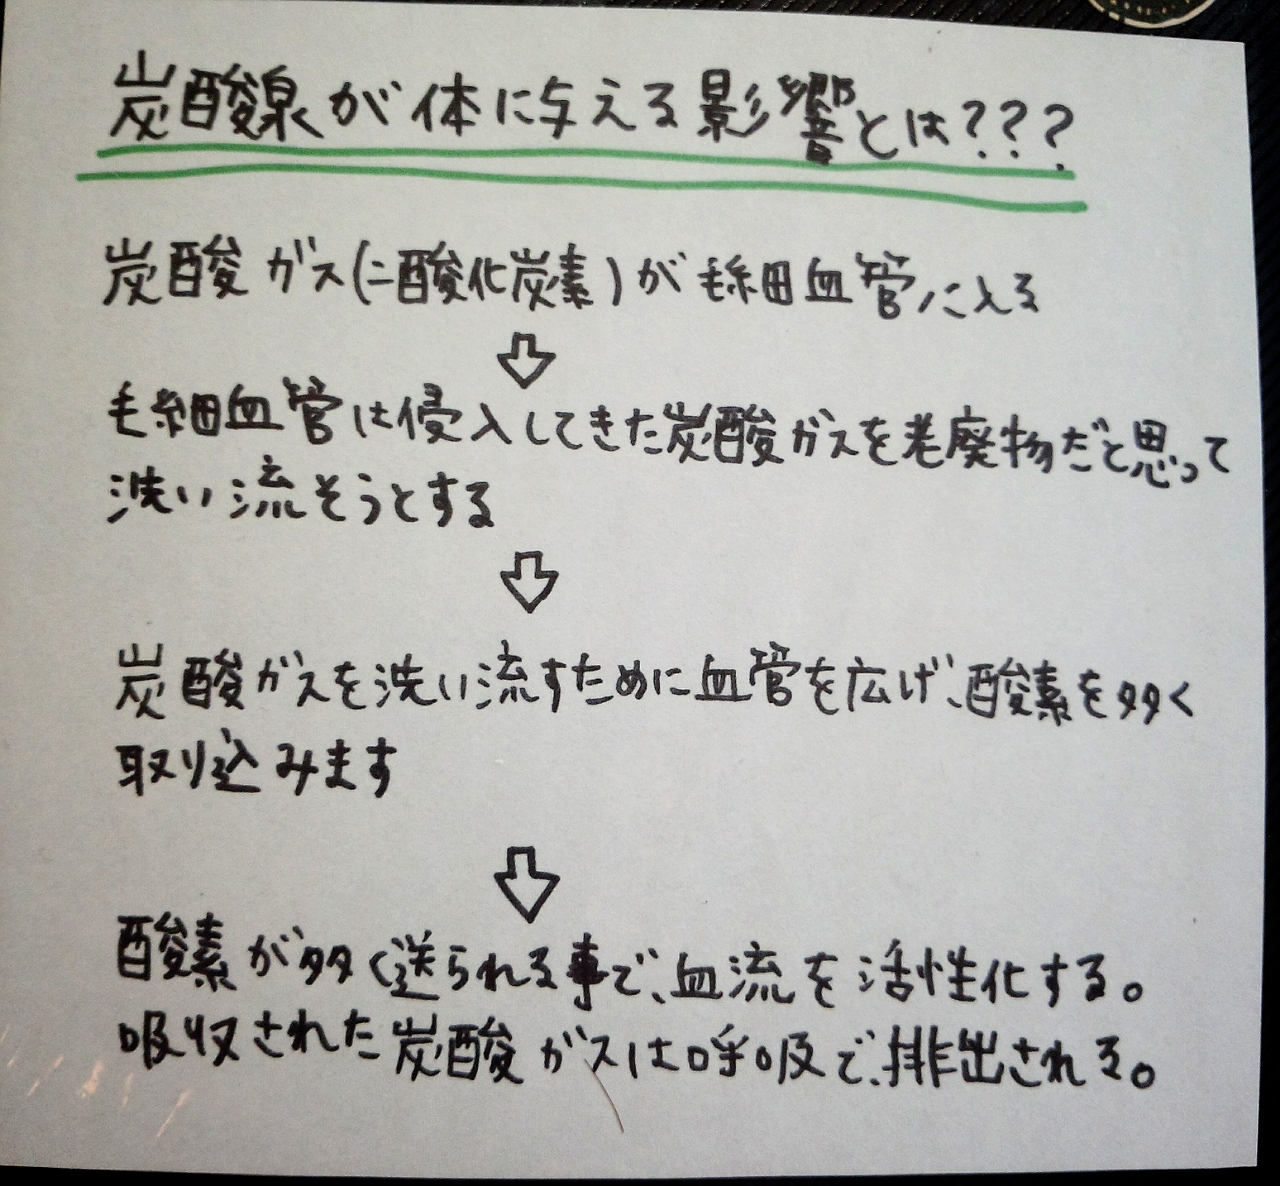 炭酸泉が体に与える影響とは???
炭酸ガス(二酸化炭素)が毛細血管に入る
⇩
毛細血管は侵入してきた炭酸ガスを老廃物だと思って
洗い流そうとする
⇩
炭酸ガスを洗い流すために血管を広げ、酸素を多く
取り込みます
⇩
酸素が多く送られる事で、血流を活性化する。
吸収された炭酸ガスは呼吸で、排出される。